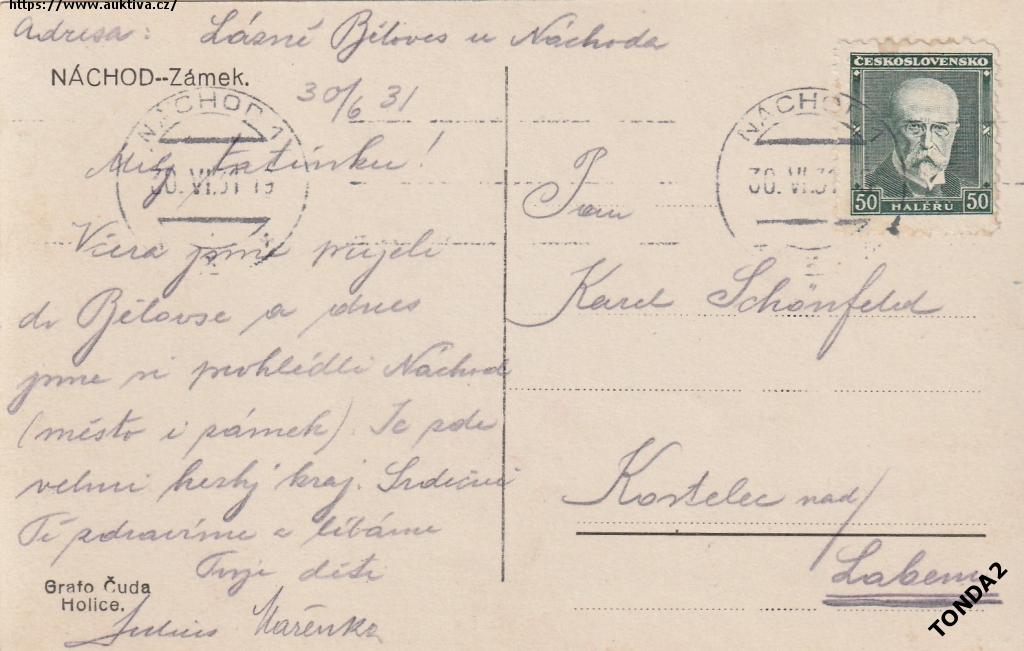 https://www.auktiva.cz/
Adresa: Lázně Běloves u Náchoda
NÁCHOD--Zámek.
30/6 31
NÁCHOD 1
30. VI. 31 19
Milý tatínku!
Včera jsme přijeli
do Bělovse a dnes
jsme si prohlédli Náchod
(město i zámek). Je zde
velmi hezký kraj. Srdečně
Tě zdravíme a líbáme
Tvoje děti
Julius Mařenka
Grafo Čuda
Holice.
ČESKOSLOVENSKO
50 HALÉŘŮ 50
NÁCHOD 1
30. VI. 31
Pan
Karel Schönfeld
Kostelec nad/
Labem
TONDA2